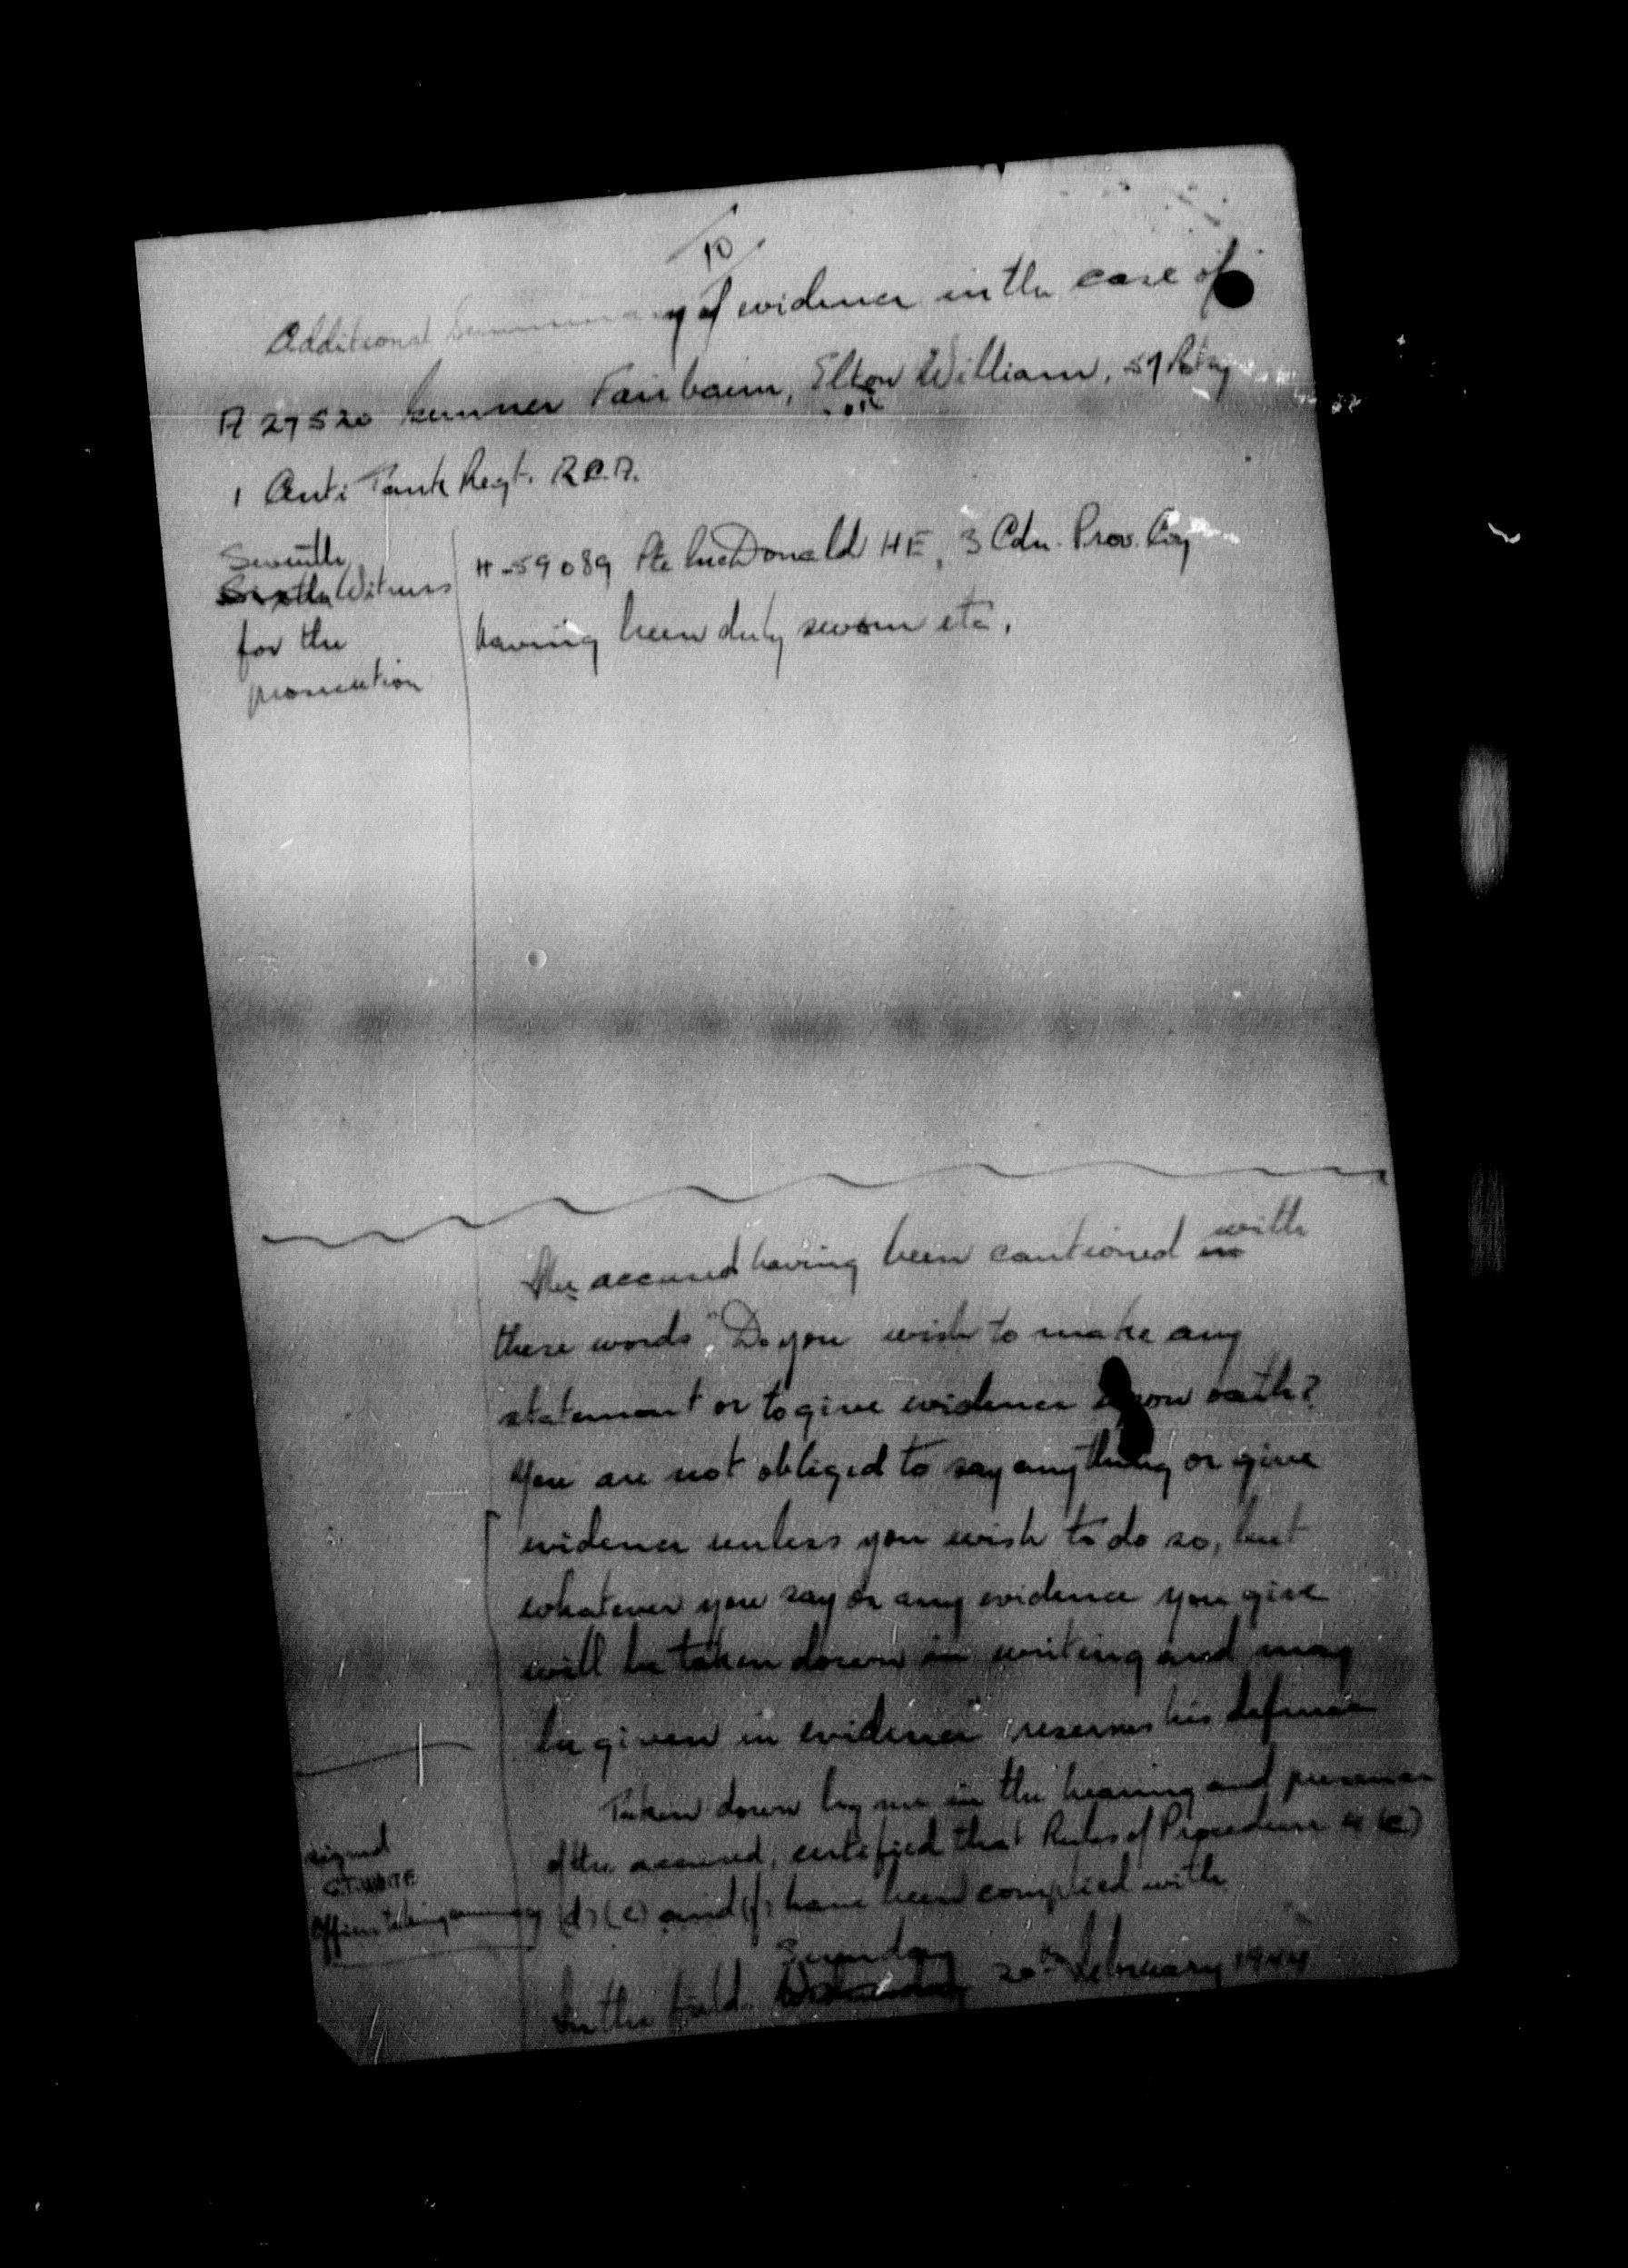 10
Additional Summary of evidence in the case of
A 27520 Gunner Fairbairn, Elton William, 57 Btry
1 Anti Tank Regt. R.C.A.
Seventh
Sixth Witness
for the
prosecution
H-59089 Pte MacDonald HE, 3 Cdn. Prov. Coy
having been duly sworn etc.
The accused having been cautioned in with
these words, "Do you wish to make any
statement or to give evidence upon oath?
You are not obliged to say anything or give
evidence unless you wish to do so, but
whatever you say or any evidence you give
will be taken down in writing and may
be given in evidence" reserves his defence
Taken down by me in the hearing and presence
of the accused, certified that Rules of Procedure 4 (c)
(d) (e) and (f) have been complied with
signed
Officer taking summary
Sunday
In the field. Wednesday 20th February 1944